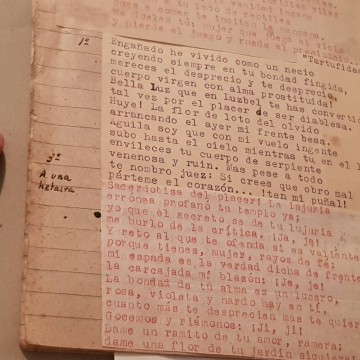 1º
"Tartufida
Engañado he vivido como un necio
creyendo siempre en tu bondad fingida,
mereces el desprecio y te desprecio,
cuerpo virgen con alma prostituida!
Bella luz que en luzbel te has convertido
tal vez por el placer de ser diablesa.
Huye! La flor de loto del olvido
arrancando el ayer mi frente besa.
Aguila soy que con mi vuelo ingente
subo hasta el cielo mientras tu en el
envileces tu cuerpo de serpiente
venenosa y ruin. Mas pese a todo
te nombro juez: Si crees que obro mal
párteme el corazón... !ten mi puñal!
3º
A una
hetaira
Sacerdotisa del placer! La injuria
errónea profanó tu templo ya;
yo que el secreto se de tu lujuria
me burlo de la crítica. ¡Ja, já!
Y reto al que te ofenda si es valiente
porque tienes, mujer, rayos de fé;
mi espada es la verdad dicha de frente
la carcajada mi blasón: ¡Je, je!
La bondad de tu alma es un lucero,
rosa, violeta y nardo hay en ti,
cuanto más te desprecian mas te quiero
Gocemos y riámonos: ¡Ji, ji!
Dame un ramito de tu amor, ramera;
dame una flor de tu jardín